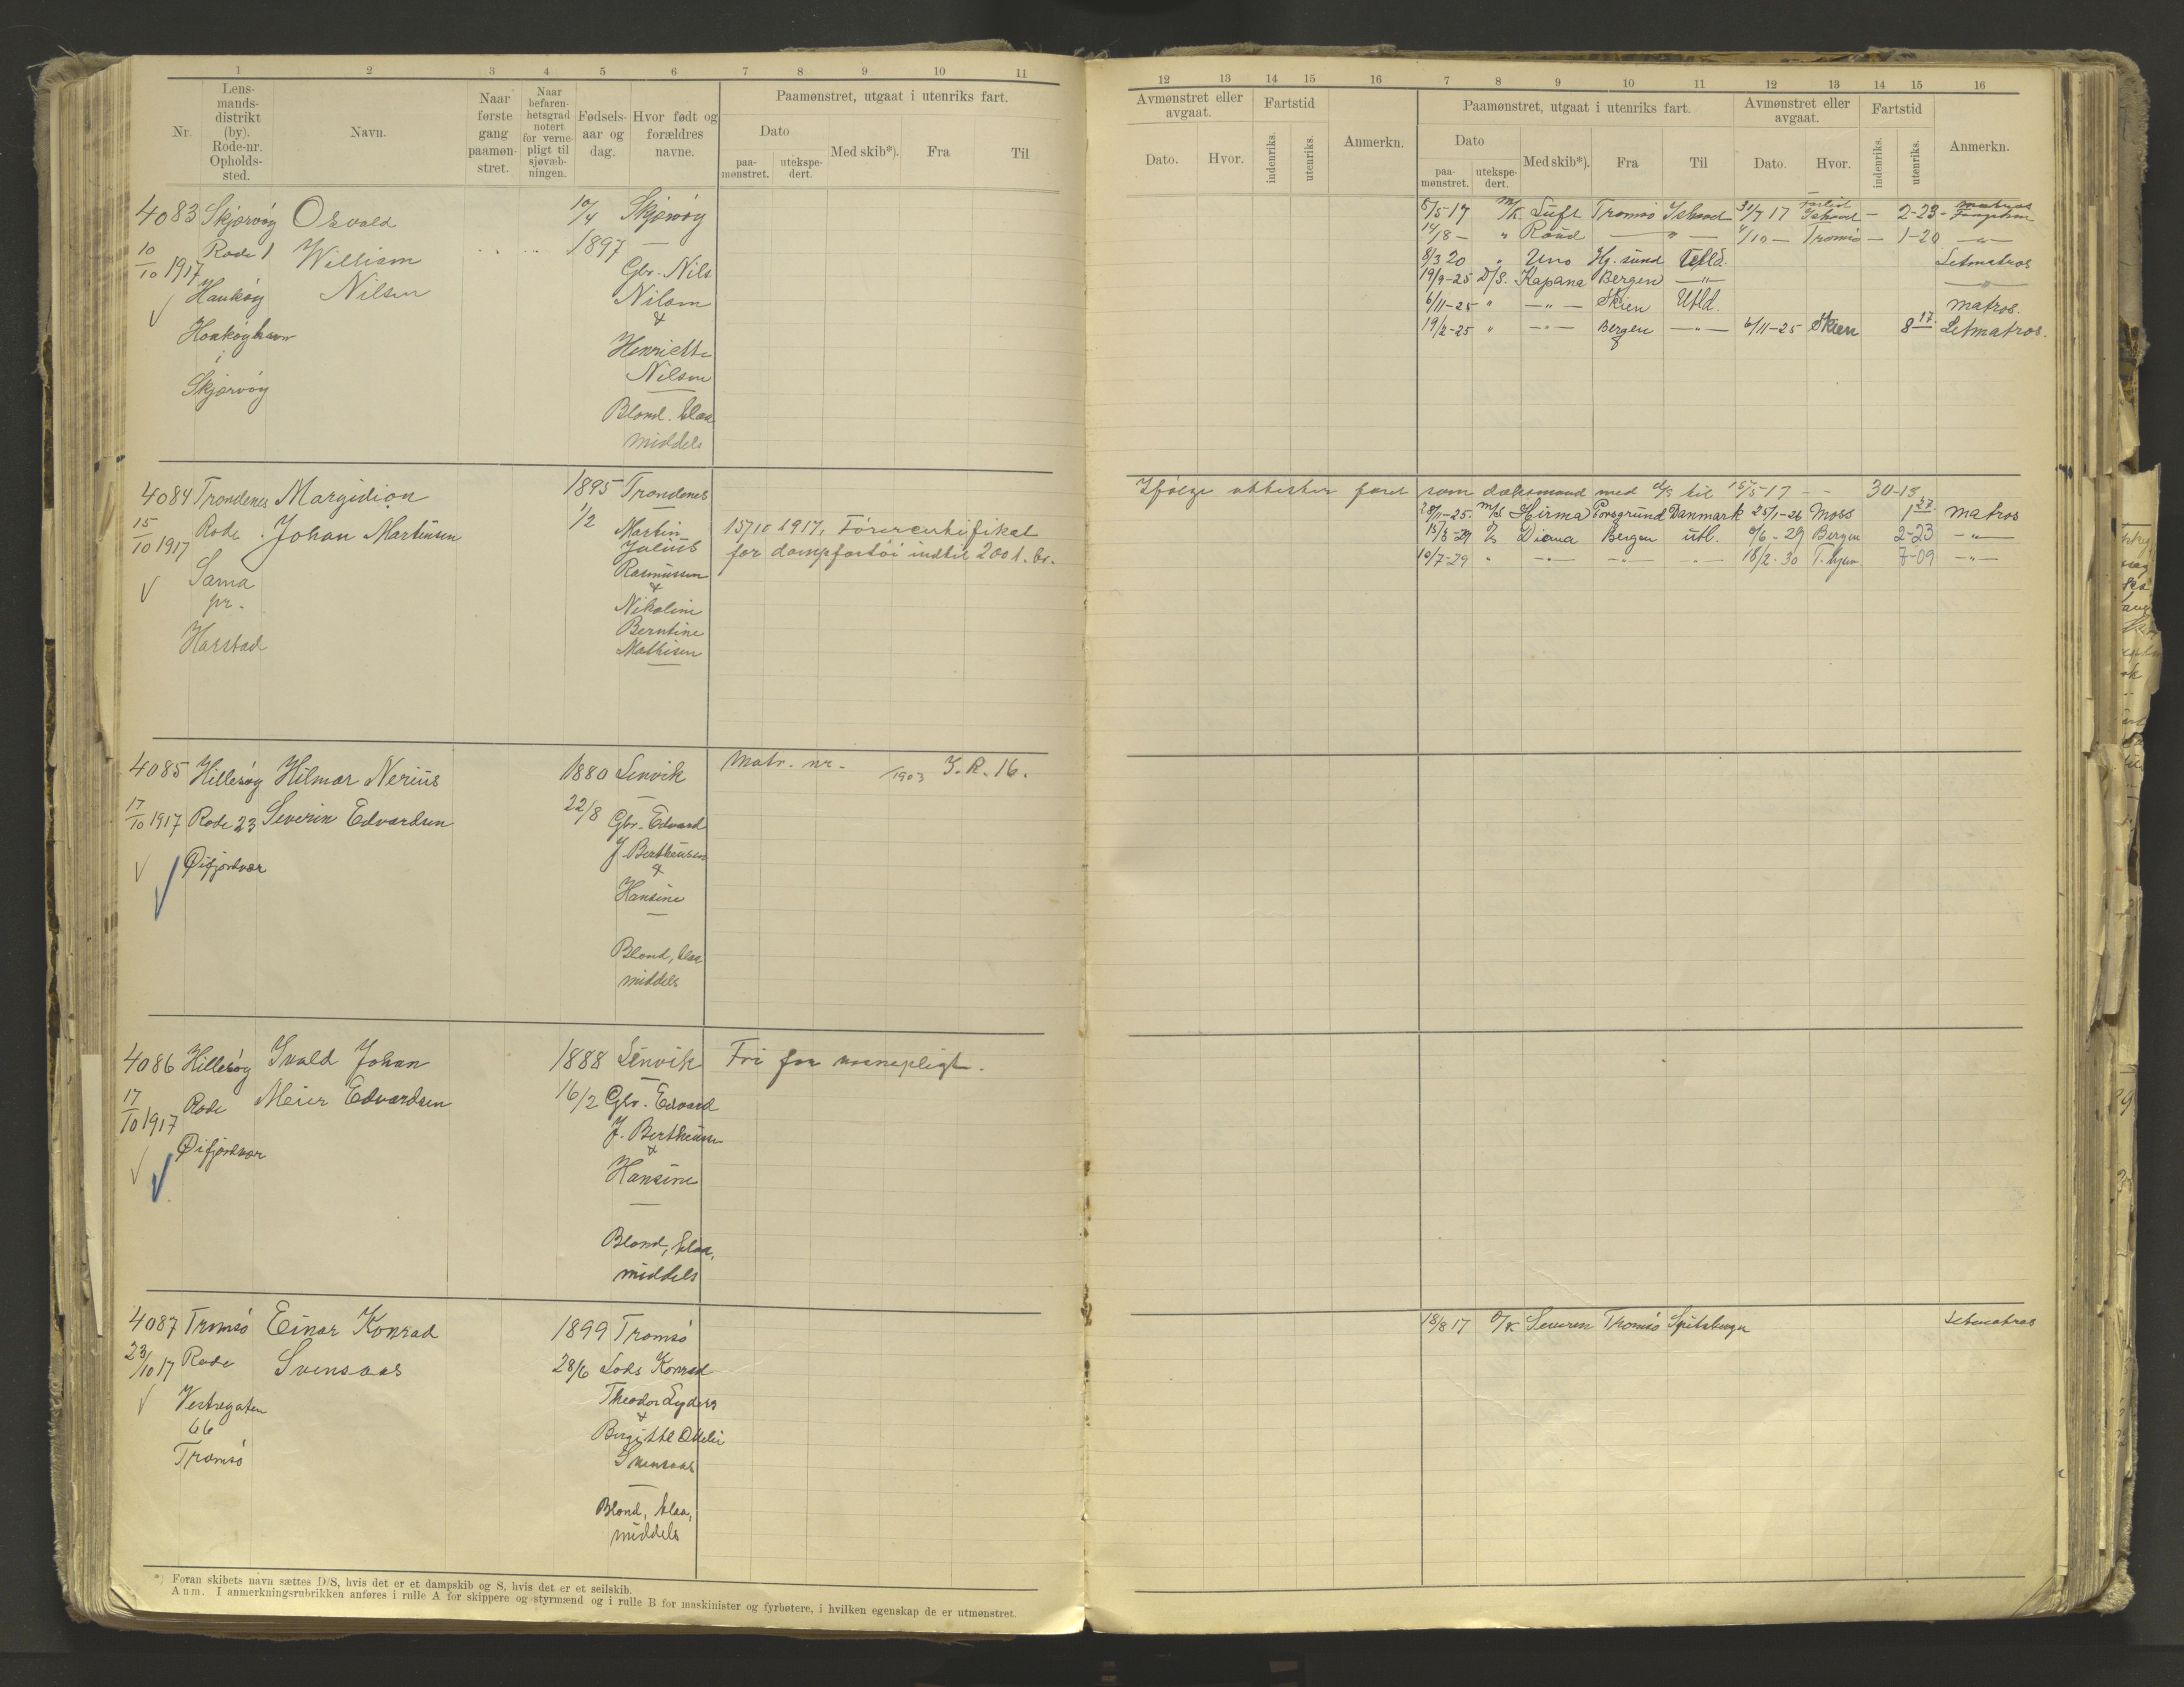 1 2 3 4 5 6 7 8 9 10 11
Nr.
Lens-
mands-
distrikt
(by).
Rode-nr.
Opholds-
sted.
Navn.
Naar
første
gang
paamøn-
stret.
Naar
befaren-
hetsgrad
notert
for verne-
pligt til
sjøvæb-
ningen.
Fødsels-
aar og
dag.
Hvor født og
forældres
navne.
Paamønstret, utgaat i utenriks fart.
Dato
paa-
mønstret.
utekspe-
dert.
Med skib*).
Fra
Til
4083 Skjærvøy Osvald 10/4 Skjervøy
10/10 1917 Rode 1 William 1897
Haukøy Nilsen Gbr. Nils
Nilsen
Haukøyhavn &
i Henriette
Skjærvøy Nilsen
Blond. blaa
middels
4084 Trondenes Margidion 1895 Trondenes
15/10 1917 Rode Johan Martinsen 1/2 Martin
Julius
Rasmussen
&
Sama
pr.
Harstad
Nikoline
Berntine
Mathisen
15/10 1917. Førercertifikat
for dampfartøi indtil 200 t. br.
4085 Hillesøy Hilmar Nerius 1880 Lenvik Matr. nr. - /1903 I. R. 16.
17/10 1917 Rode 23 Severin Edvardsen 22/8 Gbr. Edvard
Øifjordvær J. Bertheusen
&
Hansine
Blond, blaa
middels
4086 Hillesøy Ivald Johan 1888 Lenvik Fri for vernepligt.
17/10 1917 Rode Meier Edvardsen 16/2 Gbr. Edvard
J. Bertheusen
Øifjordvær &
Hansine
Blond, blaa,
middels
4087 Tromsø Einar Konrad 1899 Tromsø
23/10 17 Rode Svensaas 28/6 Lods Konrad
Vestregaten Theodor Lyders
66 &
Tromsø Birgitte Otelie
Svensaas
Blond, blaa,
middels
*) Foran skibets navn sættes D/S, hvis det er et dampskib og S, hvis det er et seilskib.
Anm. I anmerkningsrubrikken anføres i rulle A for skippere og styrmænd og i rulle B for maskinister og fyrbøtere, i hvilken egenskap de er utmønstret.
12 13 14 15 16 7 8 9 10 11 12 13 14 15 16
Avmønstret eller
avgaat.
Dato.
Hvor.
Fartstid
indenriks.
utenriks.
Anmerkn.
Paamønstret, utgaat i utenriks fart.
Dato
paa-
mønstret.
utekspe-
dert.
Med skib*).
Fra
Til
Avmønstret eller
avgaat.
Dato.
Hvor.
Fartstid
indenriks.
utenriks.
Anmerkn.
5/5 17 M/K. Luft Tromsø Ishavet 31/7 17 Forlist Ishavet - 2-23- matros
14/8 - " Raud - " - 4/10 - Tromsø - 1-20 - " -
8/3 20 " Uno Hg.sund Utld. Letmatros
19/9-25 D/S. Kapana Bergen - " - - " -
6/11-25 " - " - Skien Utld. matros.
19/2-25 " - " - Bergen - " - 6/11-25 Skien 8 17 Letmatros.
Ifølge attester faret som dæksmand med d/s til 15/5-17 - - 30-13
28/11-25. m/s Hirma Porsgrund Danmark 25/1-26 Moss 1 27 matros
15/3-29 D/S Diana Bergen utl. 8/6-29 Bergen 2-23 - " -
10/7-29 " - " - - " - - " - 18/2-30 T.hjem 7-09 - " -
18/8 17 Severin Tromsø Spitsbergen Letmatros